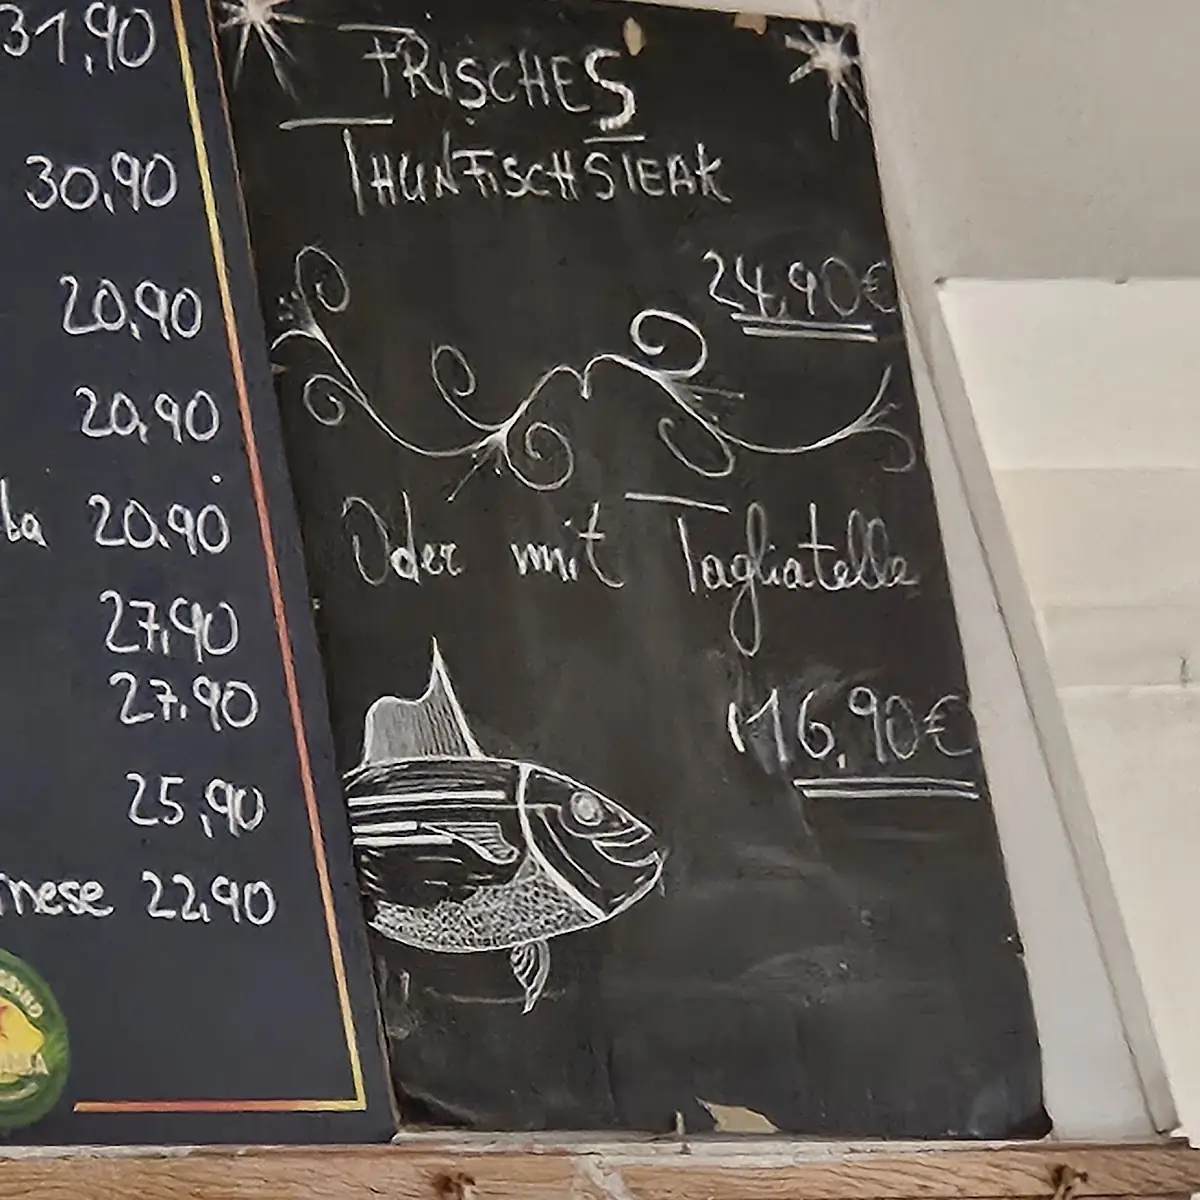 31,90
30,90
20,90
20,90
la 20,90
27,90
27,90
25,90
nese 22,90
FRISCHES
THUNFISCHSTEAK
24,90€
Oder mit Tagliatelle
16,90€